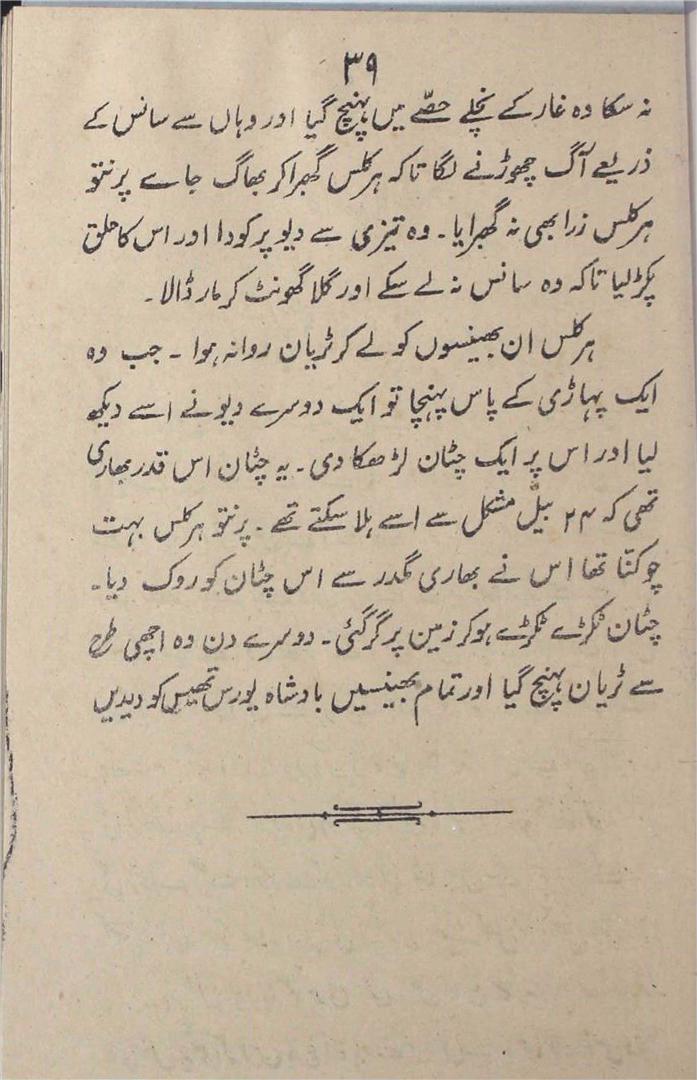 ۳۹
نہ سکا وہ غار کے نچلے حصّے میں پہنچ گیا اور وہاں سے سانس کے
ذریعے آگ چھوڑنے لگا تاکہ ہرکلس گھبرا کر بھاگ جاے پرنتو
ہرکلس زرا بھی نہ گھبرایا۔ وہ تیزی سے دیو پر کودا اور اس کا حلق
پکڑ لیا تاکہ وہ سانس نہ لے سکے اور گلا گھونٹ کر مار ڈالا۔
ہرکلس ان بھینسوں کو لے کر ٹریان روانہ ہوا ۔ جب وہ
ایک پہاڑی کے پاس پہنچا تو ایک دوسرے دیو نے اسے دیکھ
لیا اور اس پر ایک چٹان لڑھکا دی۔ یہ چٹان اس قدر بھاری
تھی کہ ۲۴ بیل مشکل سے اسے ہلا سکتے تھے ۔ پرنتو ہرکلس بہت
چوکنّا تھا اس نے بھاری گدر سے اس چٹان کو روک دیا۔
چٹان ٹکڑے ٹکڑے ہوکر زمین پر گر گئی۔ دوسرے دن وہ اچھی طرح
سے ٹریان پہنچ گیا اور تمام بھینسیں بادشاہ یورس تھیس کو دیدیں